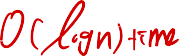 O(logn) time